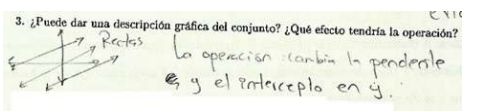 3. ¿Puede dar una descripción gráfica del conjunto? ¿Qué efecto tendría la operación?
Rectas
La operación cambia la pendiente
y el intercepto en y.